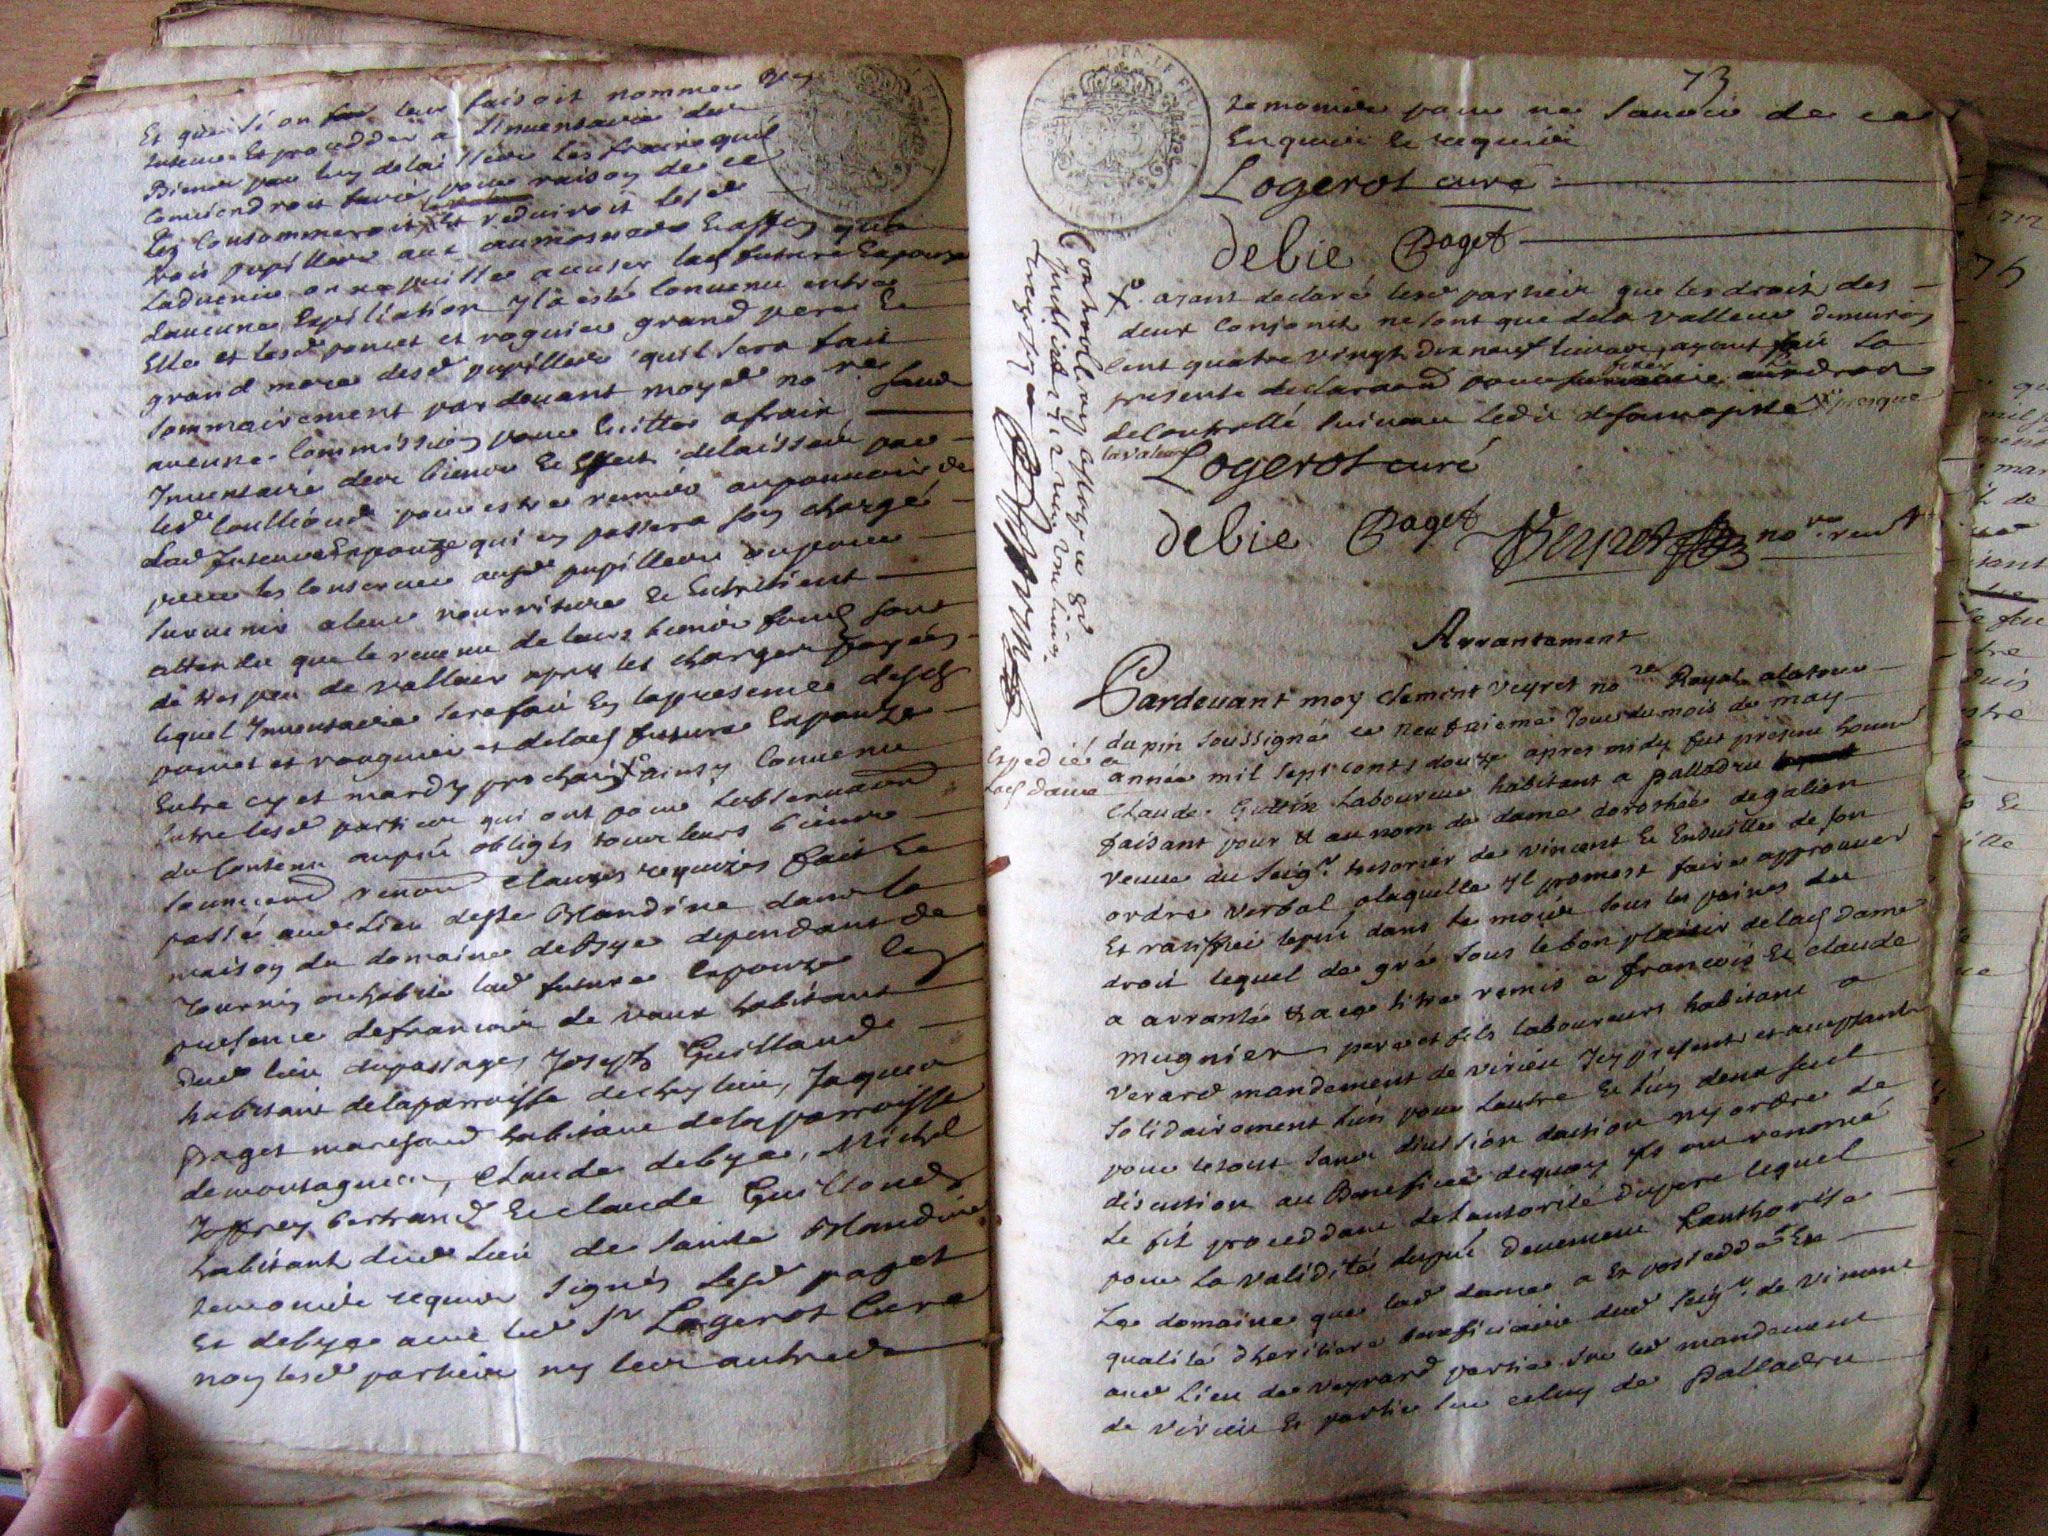 Et que si on leur faisoit nommer
Inventaire Et procedder a linventaire des
Biens par luy delaissées les frais quil
conviendroit faire pour raison de ce
les consommeroit et reduiroit lesd
trois pupilles aux aumosnes Et affin qua
ladvenir on ne puisse accuser lad future Espouze
daucune Expiliation Il a esté convenu entre
Elle et lesd poncet et roguier grand pere Et
grand mere desd pupilles quil sera fait
sommairement pardevant moyd no.re sans
aucune commission pour Eviter afrais
Inventaire des biens Et Effect delaissés par
led Coullioud pour estre remis aupouvoir de
Lad future Espouze qui en passera son chargé
pour les conserver ausd pupilles ou pour
survenir aleur nourriture Et Entretient
attendu que le revenu de leurs biens fonds sont
de tres peu de valleur apres les charges payées
lequel Inventaire sera fait En la presence desd
poncet et roguier et de lad future Espouze
Entre cy et mardy prochain ainsy convenu
Entre lesd parties qui ont pour lobservation
du contenu auprn obligés tous leurs biens
soumissions renon clauzes requizes fait Et
passé aud lieu de Ste Blandine dans la
maison du domaine debye dependant de
Tournin ou habite lad future Espouze En
presence de francois de vaux habitant
dud lieu du passage, Joseph Guillaud
habitant de la parroisse de chelieu, Jaques
paget marchand habitant de la parroisse
de montagnieu, Claude debye, Michel
Joffrey bertrand Et claude Guilloud
habitant dud lieu de sainte Blandine
temoins requis signés lesd paget
Et debye avec led Sr Logerot Cure
non lesd parties ny les autres
73
temoins pour ne scavoir de ce
Enquis Et requis
Logerot curé
debie Paget
X. ayant declaré lesd parties que les droit des
deux conjoint ne sont que de la valleur denviron
cent quatre vingt dix neuf livres, ayant fait la
presente declaration pour fixer droit
de controlle suivant ledit des X presque
la valeur
Logerot curé
debie Paget Veyret no.re
Controllé
Arrantement
Pardevant moy Clement Veyret no.re Royal alatour
dupin soussigné ce neufvieme Jour du mois de may
Expedié a
lad dame
année mil sept cents douze apres midy fut present honn
Claude Guttin laboureur habitant a palladru
faisant pour & au nom de dame dorothée degalien
veuve du seig.r tresorier de vincent Et Ensuitte de son
ordre verbal alaquelle Il promest faire approuver
Et ratiffier leprn dans le mois sous les peines du
droit lequel de gré sous le bon plaisir de lad dame
a arranté & a ce titre remis a francois Et claude
mugnier pere et fils laboureurs habitant a
verard mandement de virieu Icy present et acceptants
solidairement lun pour lautre Et lun deux seul
pour letout sans division daction ny ordre de
discution au Benefice dequoy Ils ont renoncé
le fils procedant de lautorité dupere lequel
pour la validité duprn deuement lauthorise
Le domaine que lad dame a Et possedde En
qualité dheritiere beneficiaire dud Seig.r de vincent
aud lieu de veyrard partie sur led mandement
de virieu Et partie sur celuy de palladru